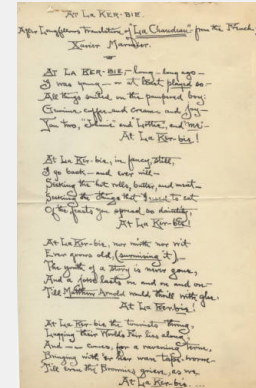 AT LA KER-BIE.
After Longfellow's Translation of "La Chaudeau" from the French,
Xavier Marmier.
At La KER-BIE, — long — long ago —
I was young — or at least played so —
All things smiled on the pampered boy:
Genuine coffee and cream and joy —
You two, and "Lottie", and "me" —
At La Ker-bie!
At La Ker-bie, in fancy, still,
I go back — and ever will —
Seeking the hot rolls, butter, and meat —
Seeking the things that I used to eat
Of the feasts you spread so daintily,
At La Ker-bie!
At La Ker-bie, nor mirth nor wit
Ever grows old, (surmising it) —
The youth of a story is never gone,
And a joke lasts on and on and on —
Till Matthew Arnold would thrill with glee
At La Ker-bie!
At La Ker-bie the tourists throng,
Lugging their Worlds Fair lies along
And one comes, for a ravening
Bringing with 'er her wan tape-worm —
Till even the Brownies grieve, as we
At La Ker-bie.